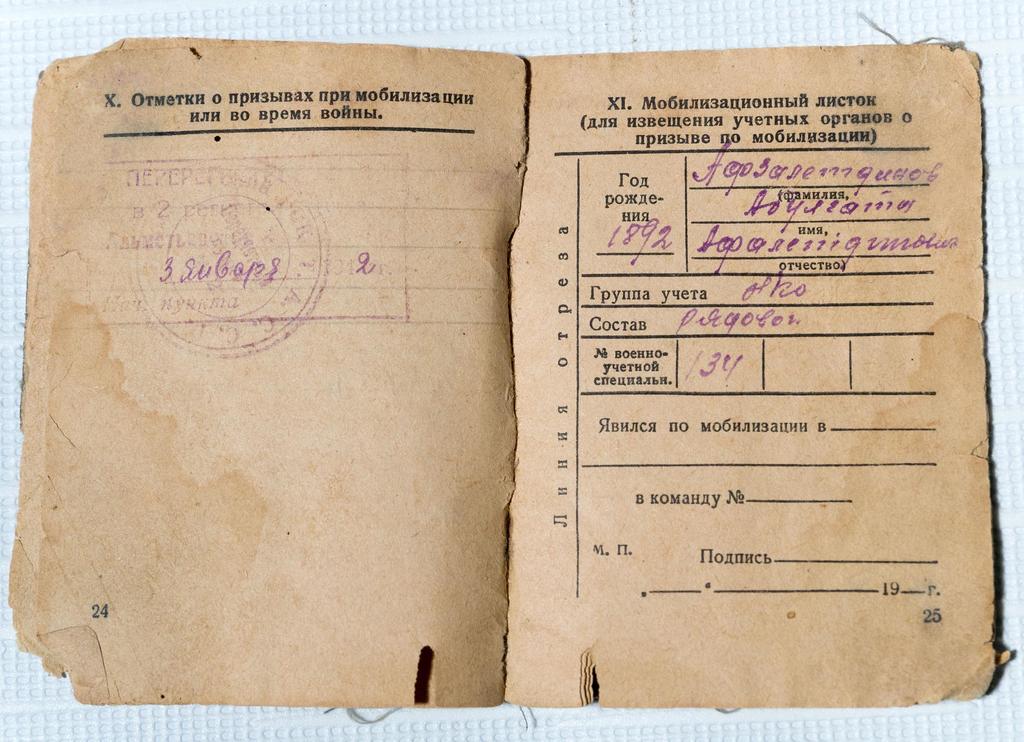 X. Отметки о призывах при мобилизации
или во время войны.
в 2
3 января 2 г.
Нач. пункта
24
XI. Мобилизационный листок
(для извещения учетных органов о
призыве по мобилизации)
Линия отреза
Год
рожде-
ния
1892
(фамилия,
имя,
отчество)
Группа учета
Состав рядовой
№ военно-
учетной
специальн.
134
Явился по мобилизации в
в команду №
М. П.
Подпись
„ “ 19 г.
25